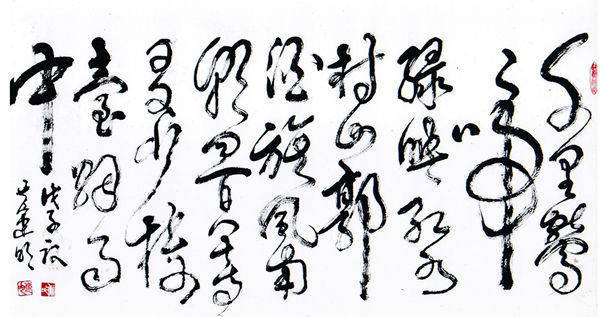 千里鶯
啼
绿映红水
村山郭
酒旗風南
朝四百八十寺
多少楼
臺烟雨
中
戊子秋